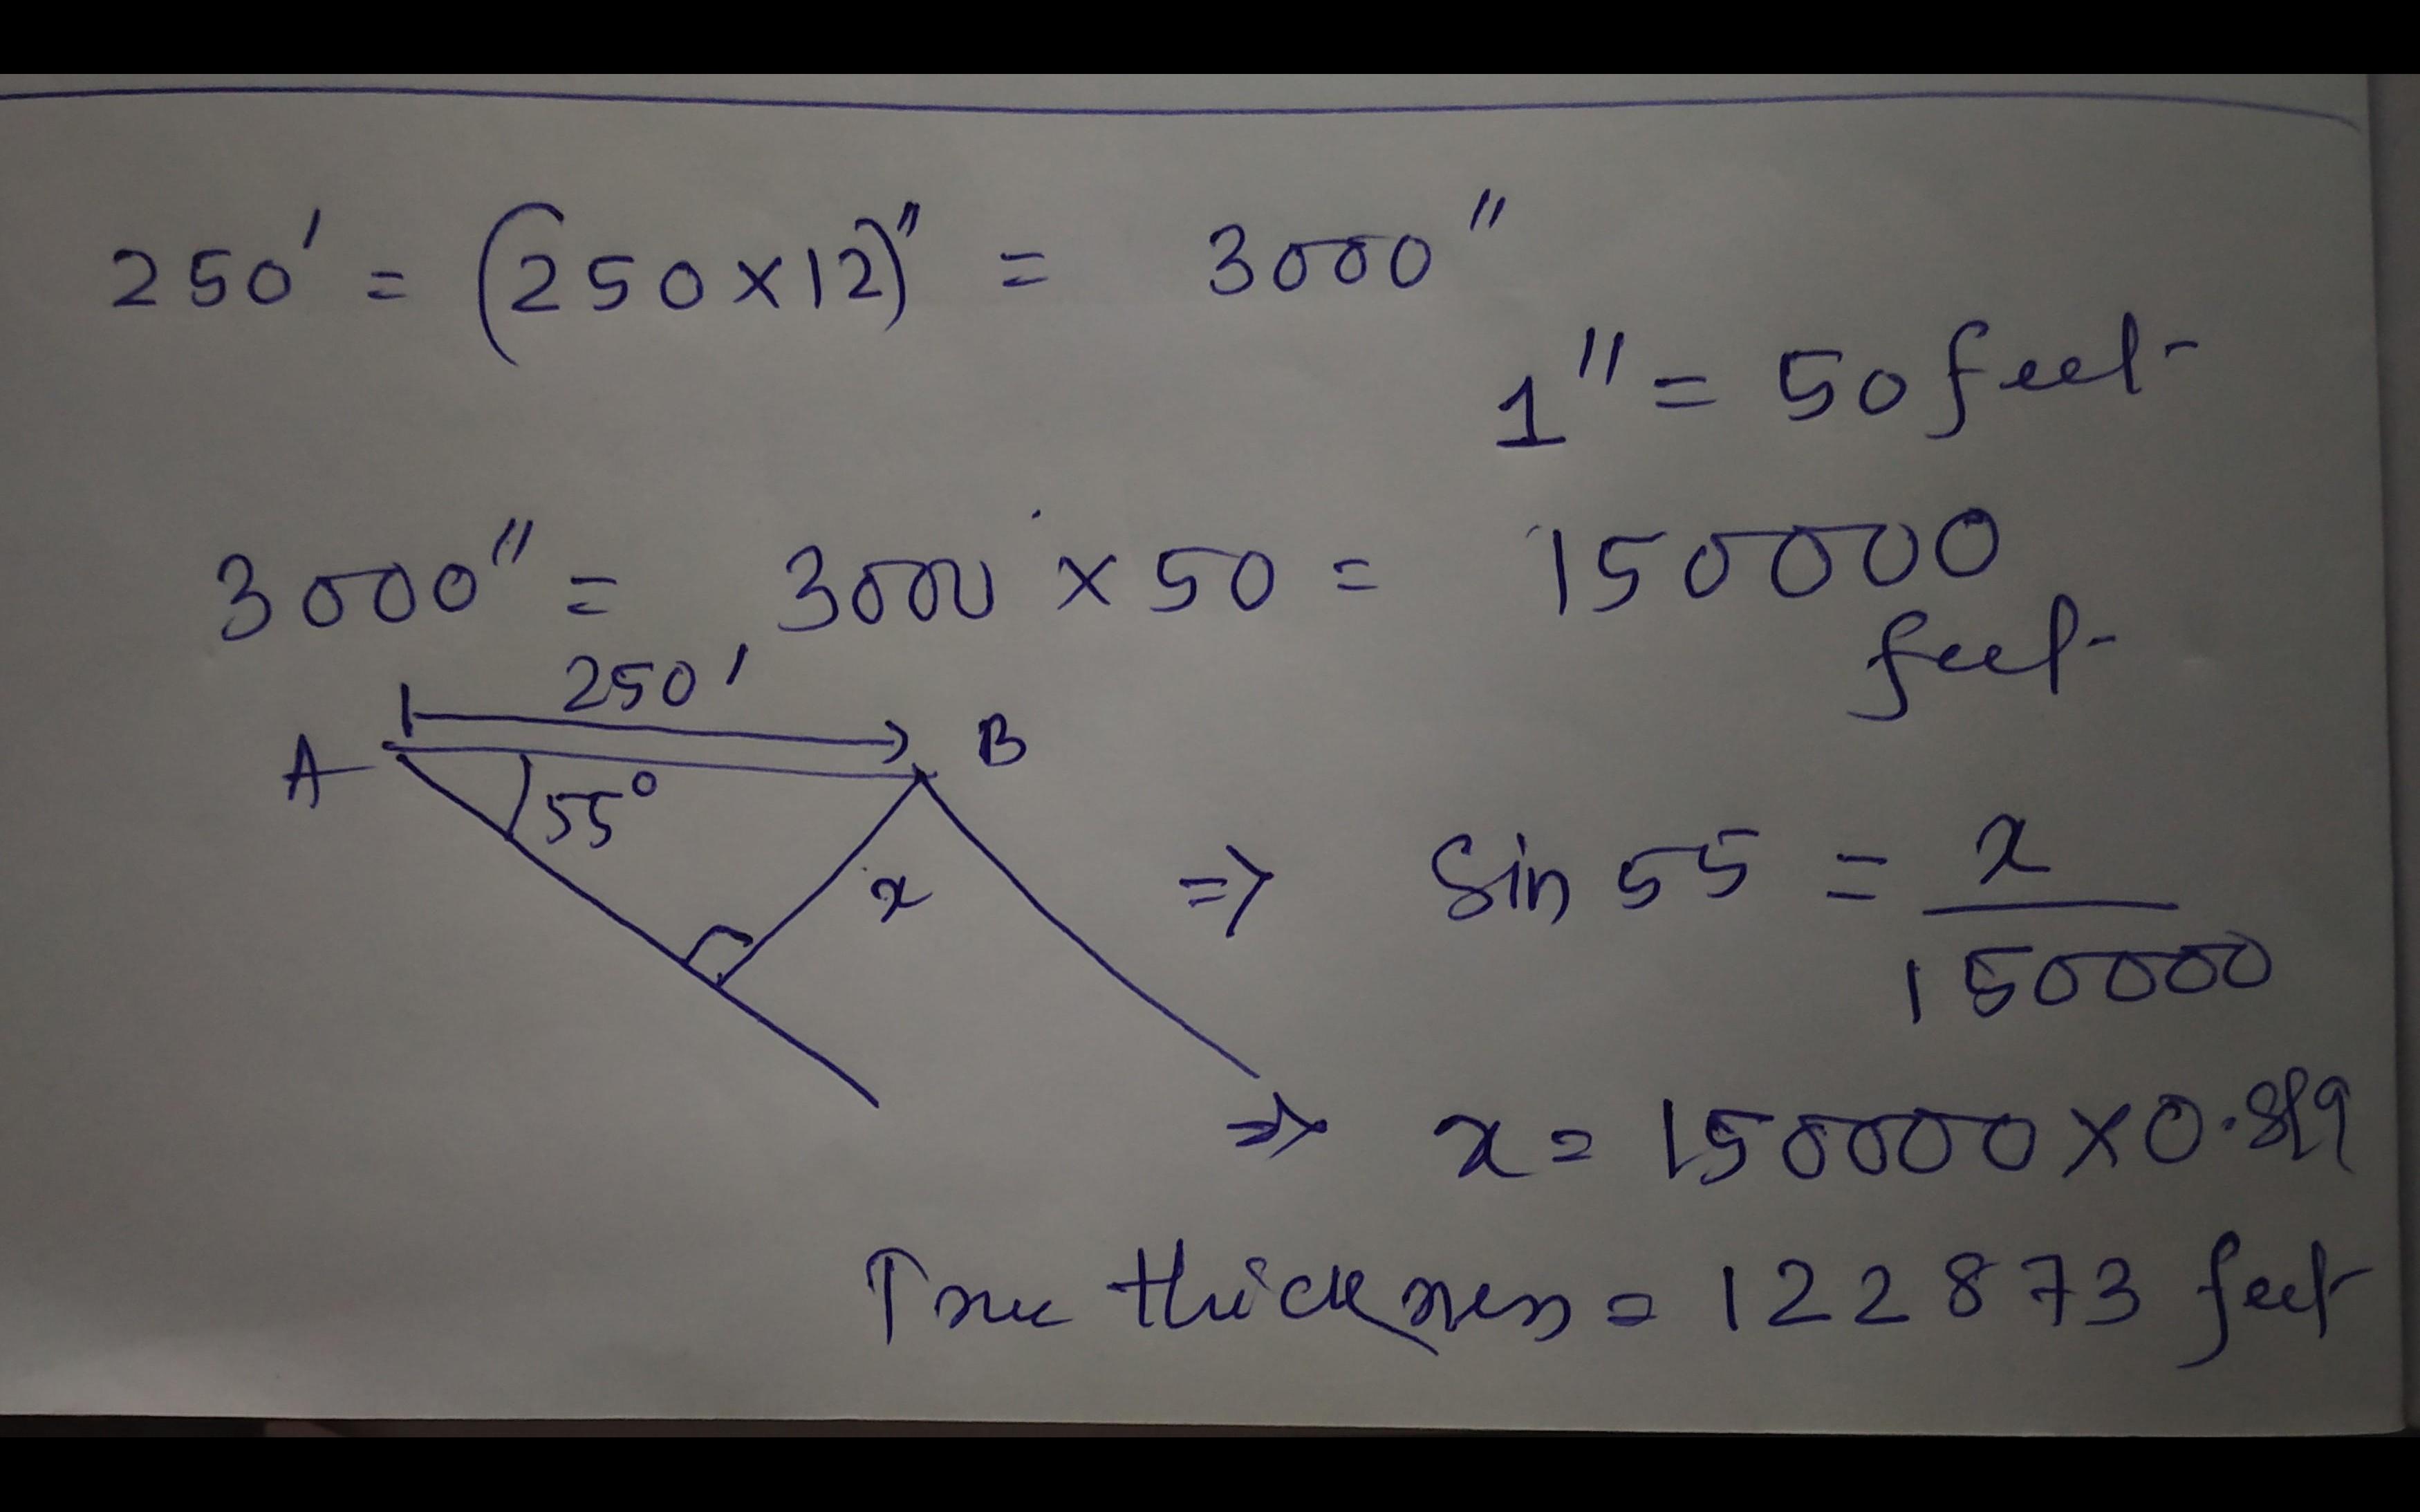 250' = (250×12)" = 3000"
1" = 50 feet
3000" = 3000 × 50 = 150000
feet
250'
A
B
55°
x
⇒ Sin 55 = x / 150000
⇒ x = 150000 × 0.819
True thickness = 122873 feet